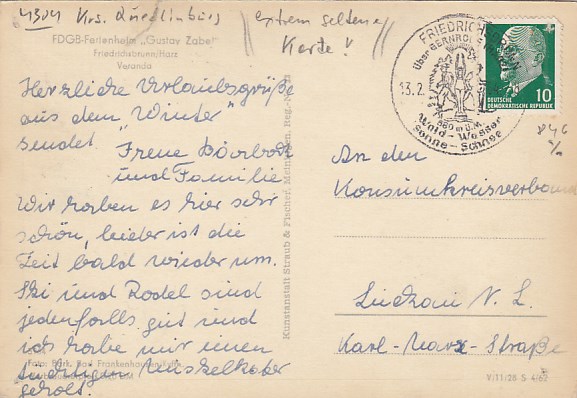 4301 Krs. Quedlinburg
extrem seltene
Karte!
FDGB-Ferienheim „Gustav Zabel"
Friedrichsbrunn/Harz
Veranda
Herzliche Urlaubsgrüße
aus dem „Winter"
sendet Irene
und Familie
Wir haben es hier sehr
schön, leider ist die
Zeit bald wieder um.
Ski und Rodel sind
jedenfalls gut und
ich habe mir einen
Muskelkater
geholt.
Bad Frankenhausen
Kunstanstalt Straub & Fischer, Meiningen, Reg.-Nr.
FRIEDRICHSBRUNN
über BERNBURG
13.2.
580 m ü. M.
Wald - Wasser
Sonne - Schnee
10
DEUTSCHE
DEMOKRATISCHE REPUBLIK
An den
Konsumkreisverband
Luckau N. L.
Karl-Marx-Straße
V/11/28 S 4/62